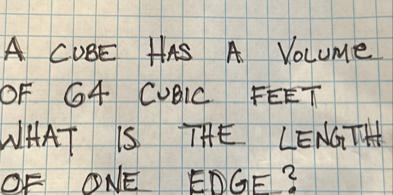 A CUBE HAS A VOLUMe
OF 64 CUBIC FEET
WHAT IS THE LENGTH
OF ONE EDGE?